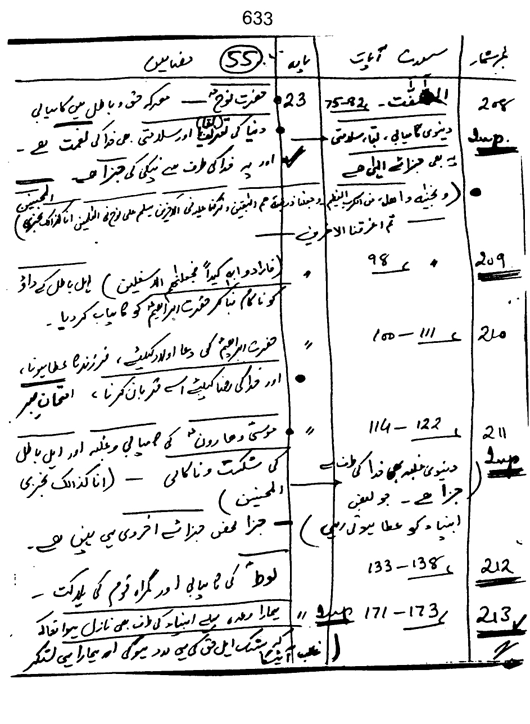 633
نمبر شمار سورت آیات پارہ 55 مضامین
208 الصّٰفّٰت - 75-82 23 حضرت نوحؑ — معرکہ حق و باطل میں کامیابی
Imp. دنیوی کامیابی، بقاء سلامتی دنیا کی اور سلامتی بھی خدا کی نعمت ہے -
یہ بھی جزائے الٰہی ہے اور یہ خدا کی طرف سے نیکی کی جزا ہے
المحسنین
(و نجینٰہ و اھلہ من الکرب العظیم و جعلنا ذریتہ ھم الباقین و ترکنا علیہ فی الآخرین سلٰم علی نوح فی العٰلمین انا کذالک نجزی)
— ثم اغرقنا الآخرین —
209 " 98 " (فارادوا بہ کیداً فجعلنٰھم الاسفلین) اہل باطل کے داؤ
کو ناکام بنا کر حضرت ابراھیمؑ کو کامیاب کر دیا -
210 " 100-111 " حضرت ابراھیمؑ کی دعا اولاد کیلئے، فرزند کا عطا ہونا،
اور خدا کی رضا کیلئے اسے قربان کرنا، امتحان
211 " 114-122 " موسیٰؑ و ھارونؑ کی کامیابی و غلبہ اور اہل باطل
Imp (دنیوی غلبہ بھی خدا کی طرف سے کی شکست و ناکامی — (انا کذالک نجزی
جزا ہے - جو بعض المحسنین)
انبیاء کو عطا ہوتی رہی) — جزا محض جزائے اخروی ہی نہیں ہے -
212 " 133-138 لوطؑ کی کامیابی اور گمراہ قوم کی ہلاکت -
213 " 171-173 Imp " ہمارا وعدہ پہلے انبیاء کی طرف بھی نازل ہوا تھا کہ
بیشک اہل حق کی ہی مدد ہوگی اور ہمارا ہی لشکر
غالب آئیگا)